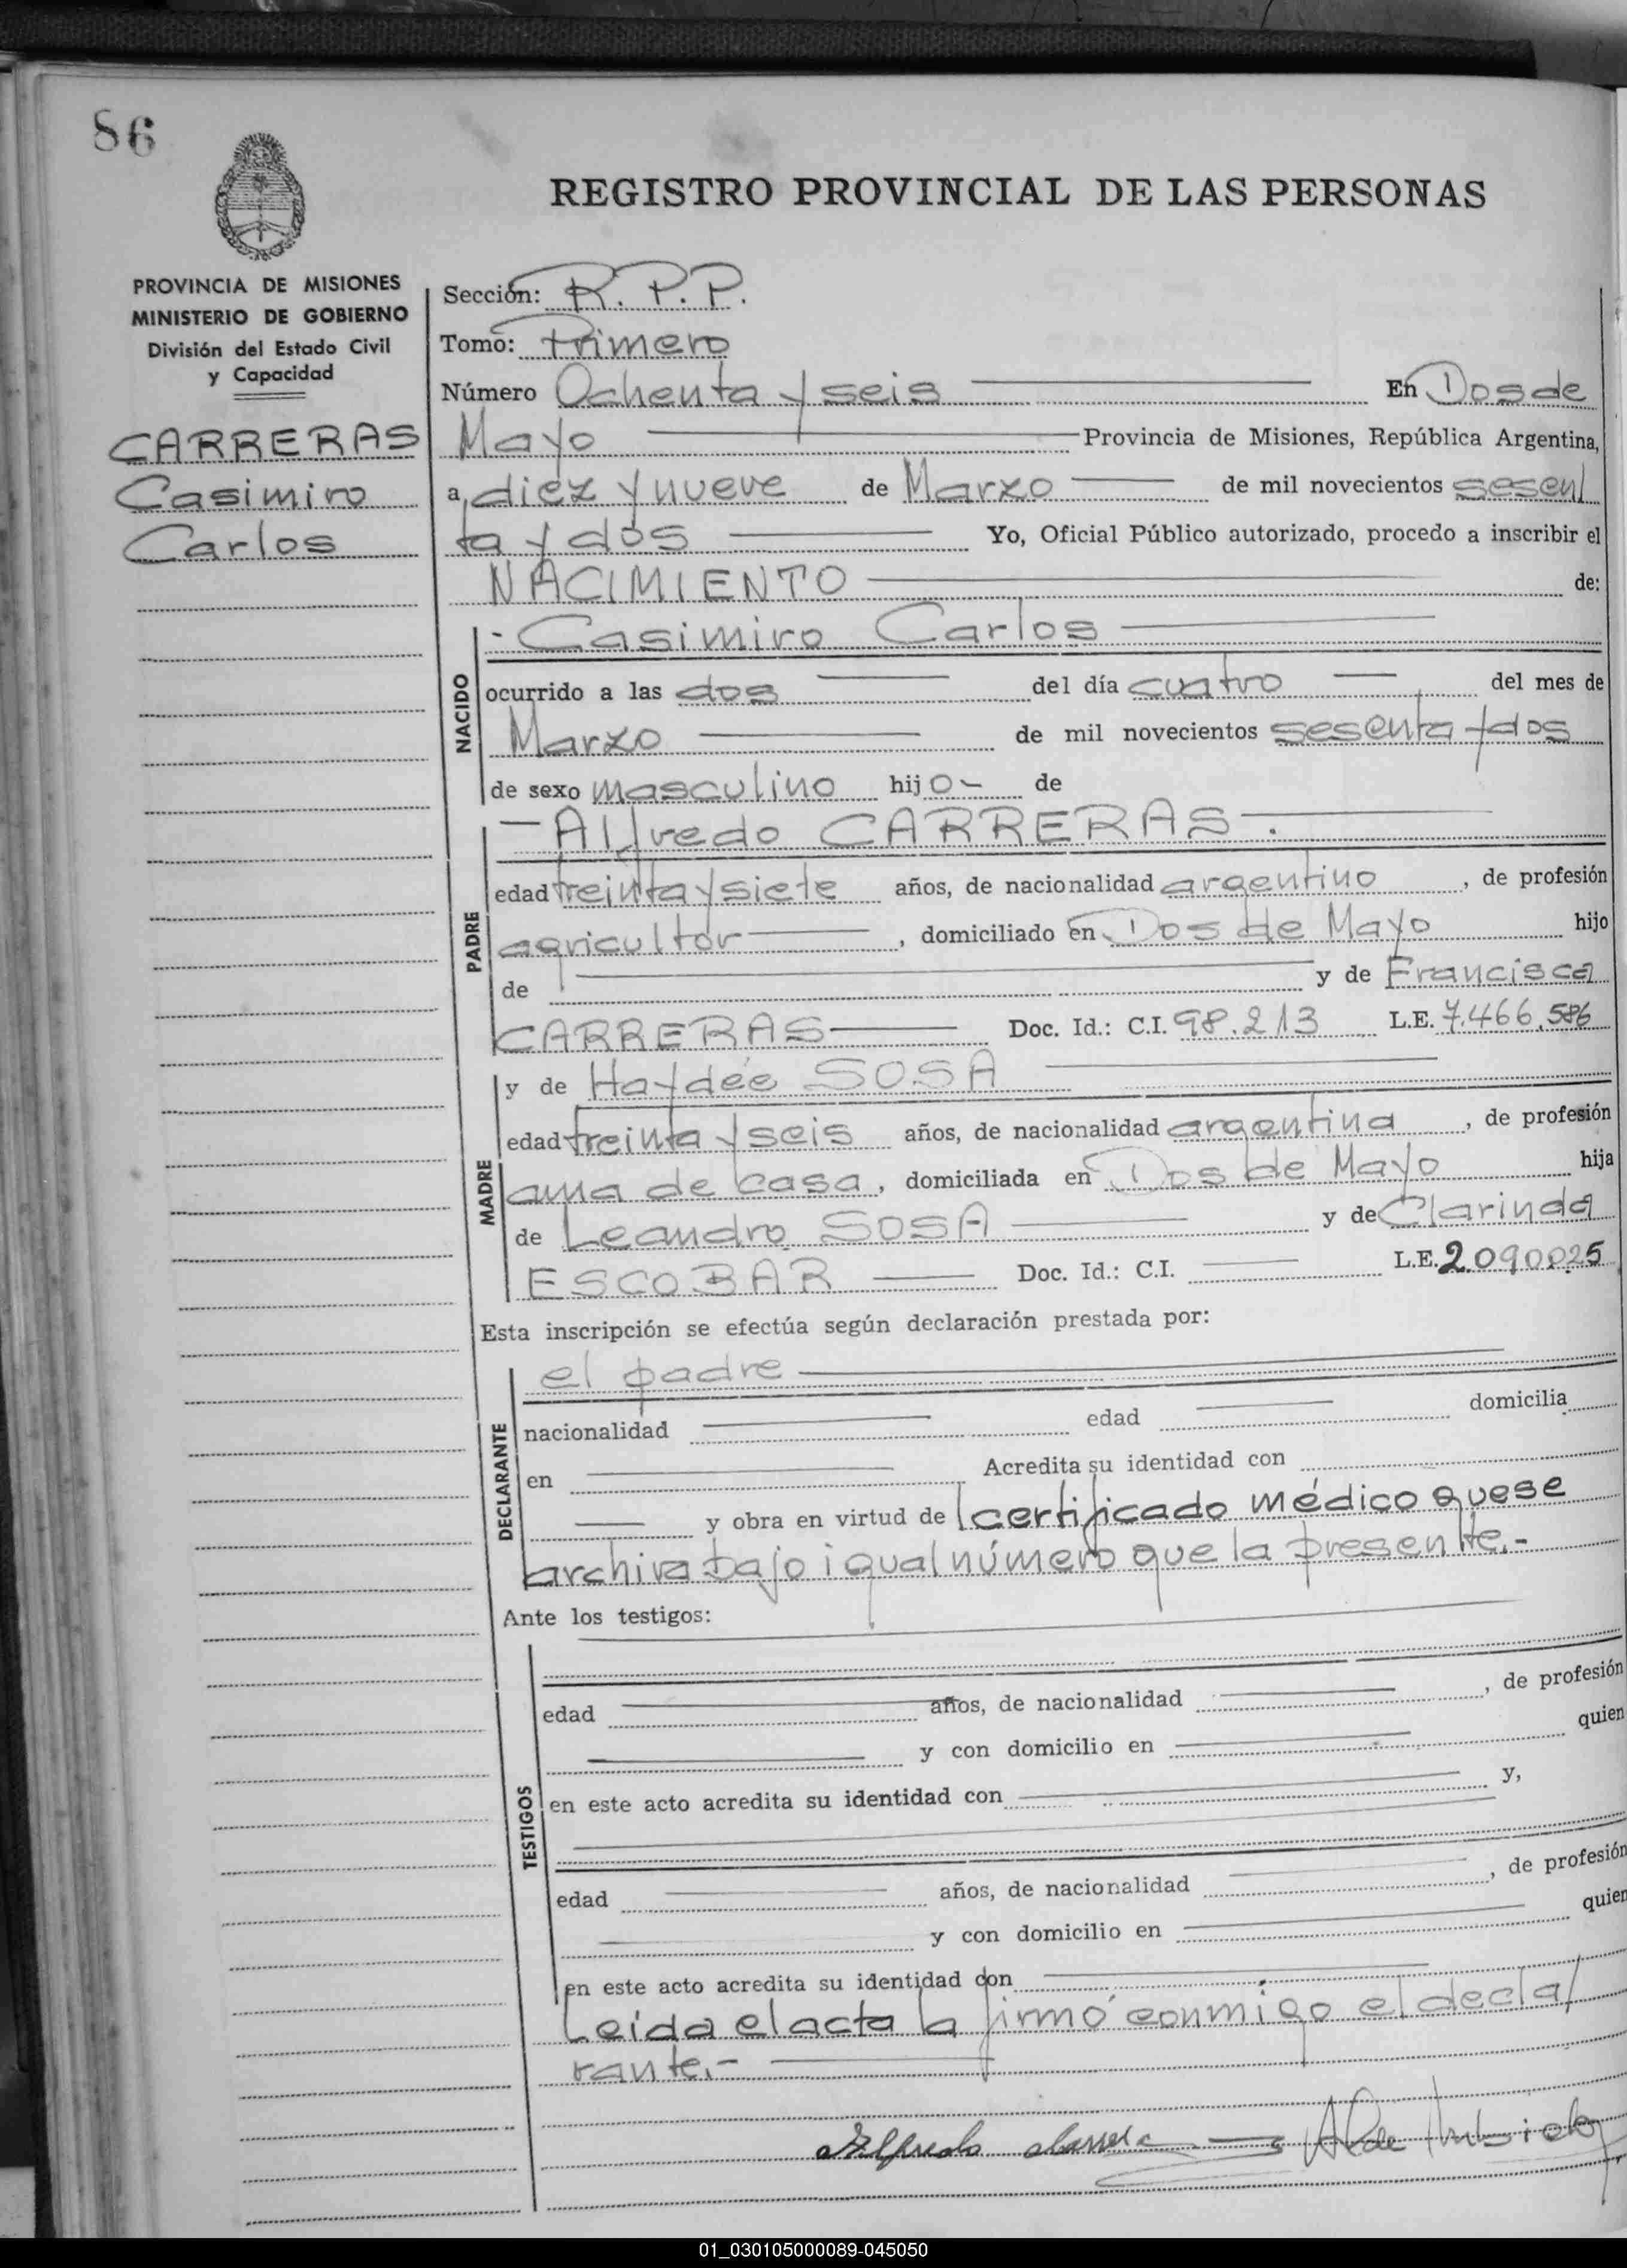 86
REGISTRO PROVINCIAL DE LAS PERSONAS
PROVINCIA DE MISIONES
MINISTERIO DE GOBIERNO
División del Estado Civil
y Capacidad
CARRERAS
Casimiro
Carlos
Sección: R. P. P.
Tomo: Primero
Número Ochenta y seis En Dos de
Mayo Provincia de Misiones, República Argentina,
a diez y nueve de Marzo de mil novecientos sesen/
ta y dos Yo, Oficial Público autorizado, procedo a inscribir el
NACIMIENTO de:
NACIDO
- Casimiro Carlos
ocurrido a las dos del día cuatro del mes de
Marzo de mil novecientos sesenta y dos
de sexo masculino hijo- de
PADRE
- Alfredo CARRERAS.
edad treinta y siete años, de nacionalidad argentino, de profesión
agricultor, domiciliado en Dos de Mayo hijo
de y de Francisca
CARRERAS Doc. Id.: C.I. 98.213 L.E. 7.466.586
MADRE
y de Haydée SOSA
edad treinta y seis años, de nacionalidad argentina, de profesión
ama de casa, domiciliada en Dos de Mayo hija
de Leandro SOSA y de Clarinda
ESCOBAR Doc. Id.: C.I. L.E. 2.090.025
Esta inscripción se efectúa según declaración prestada por:
DECLARANTE
el padre
nacionalidad edad domicilia
en Acredita su identidad con
y obra en virtud de certificado médico que se
archiva bajo igual número que la presente.-
Ante los testigos:
TESTIGOS
edad años, de nacionalidad , de profesión
y con domicilio en quien
en este acto acredita su identidad con y,
edad años, de nacionalidad , de profesión
y con domicilio en quien
en este acto acredita su identidad con
Leída el acta la firmó conmigo el decla/
rante.-
Alfredo
01_030105000089-045050